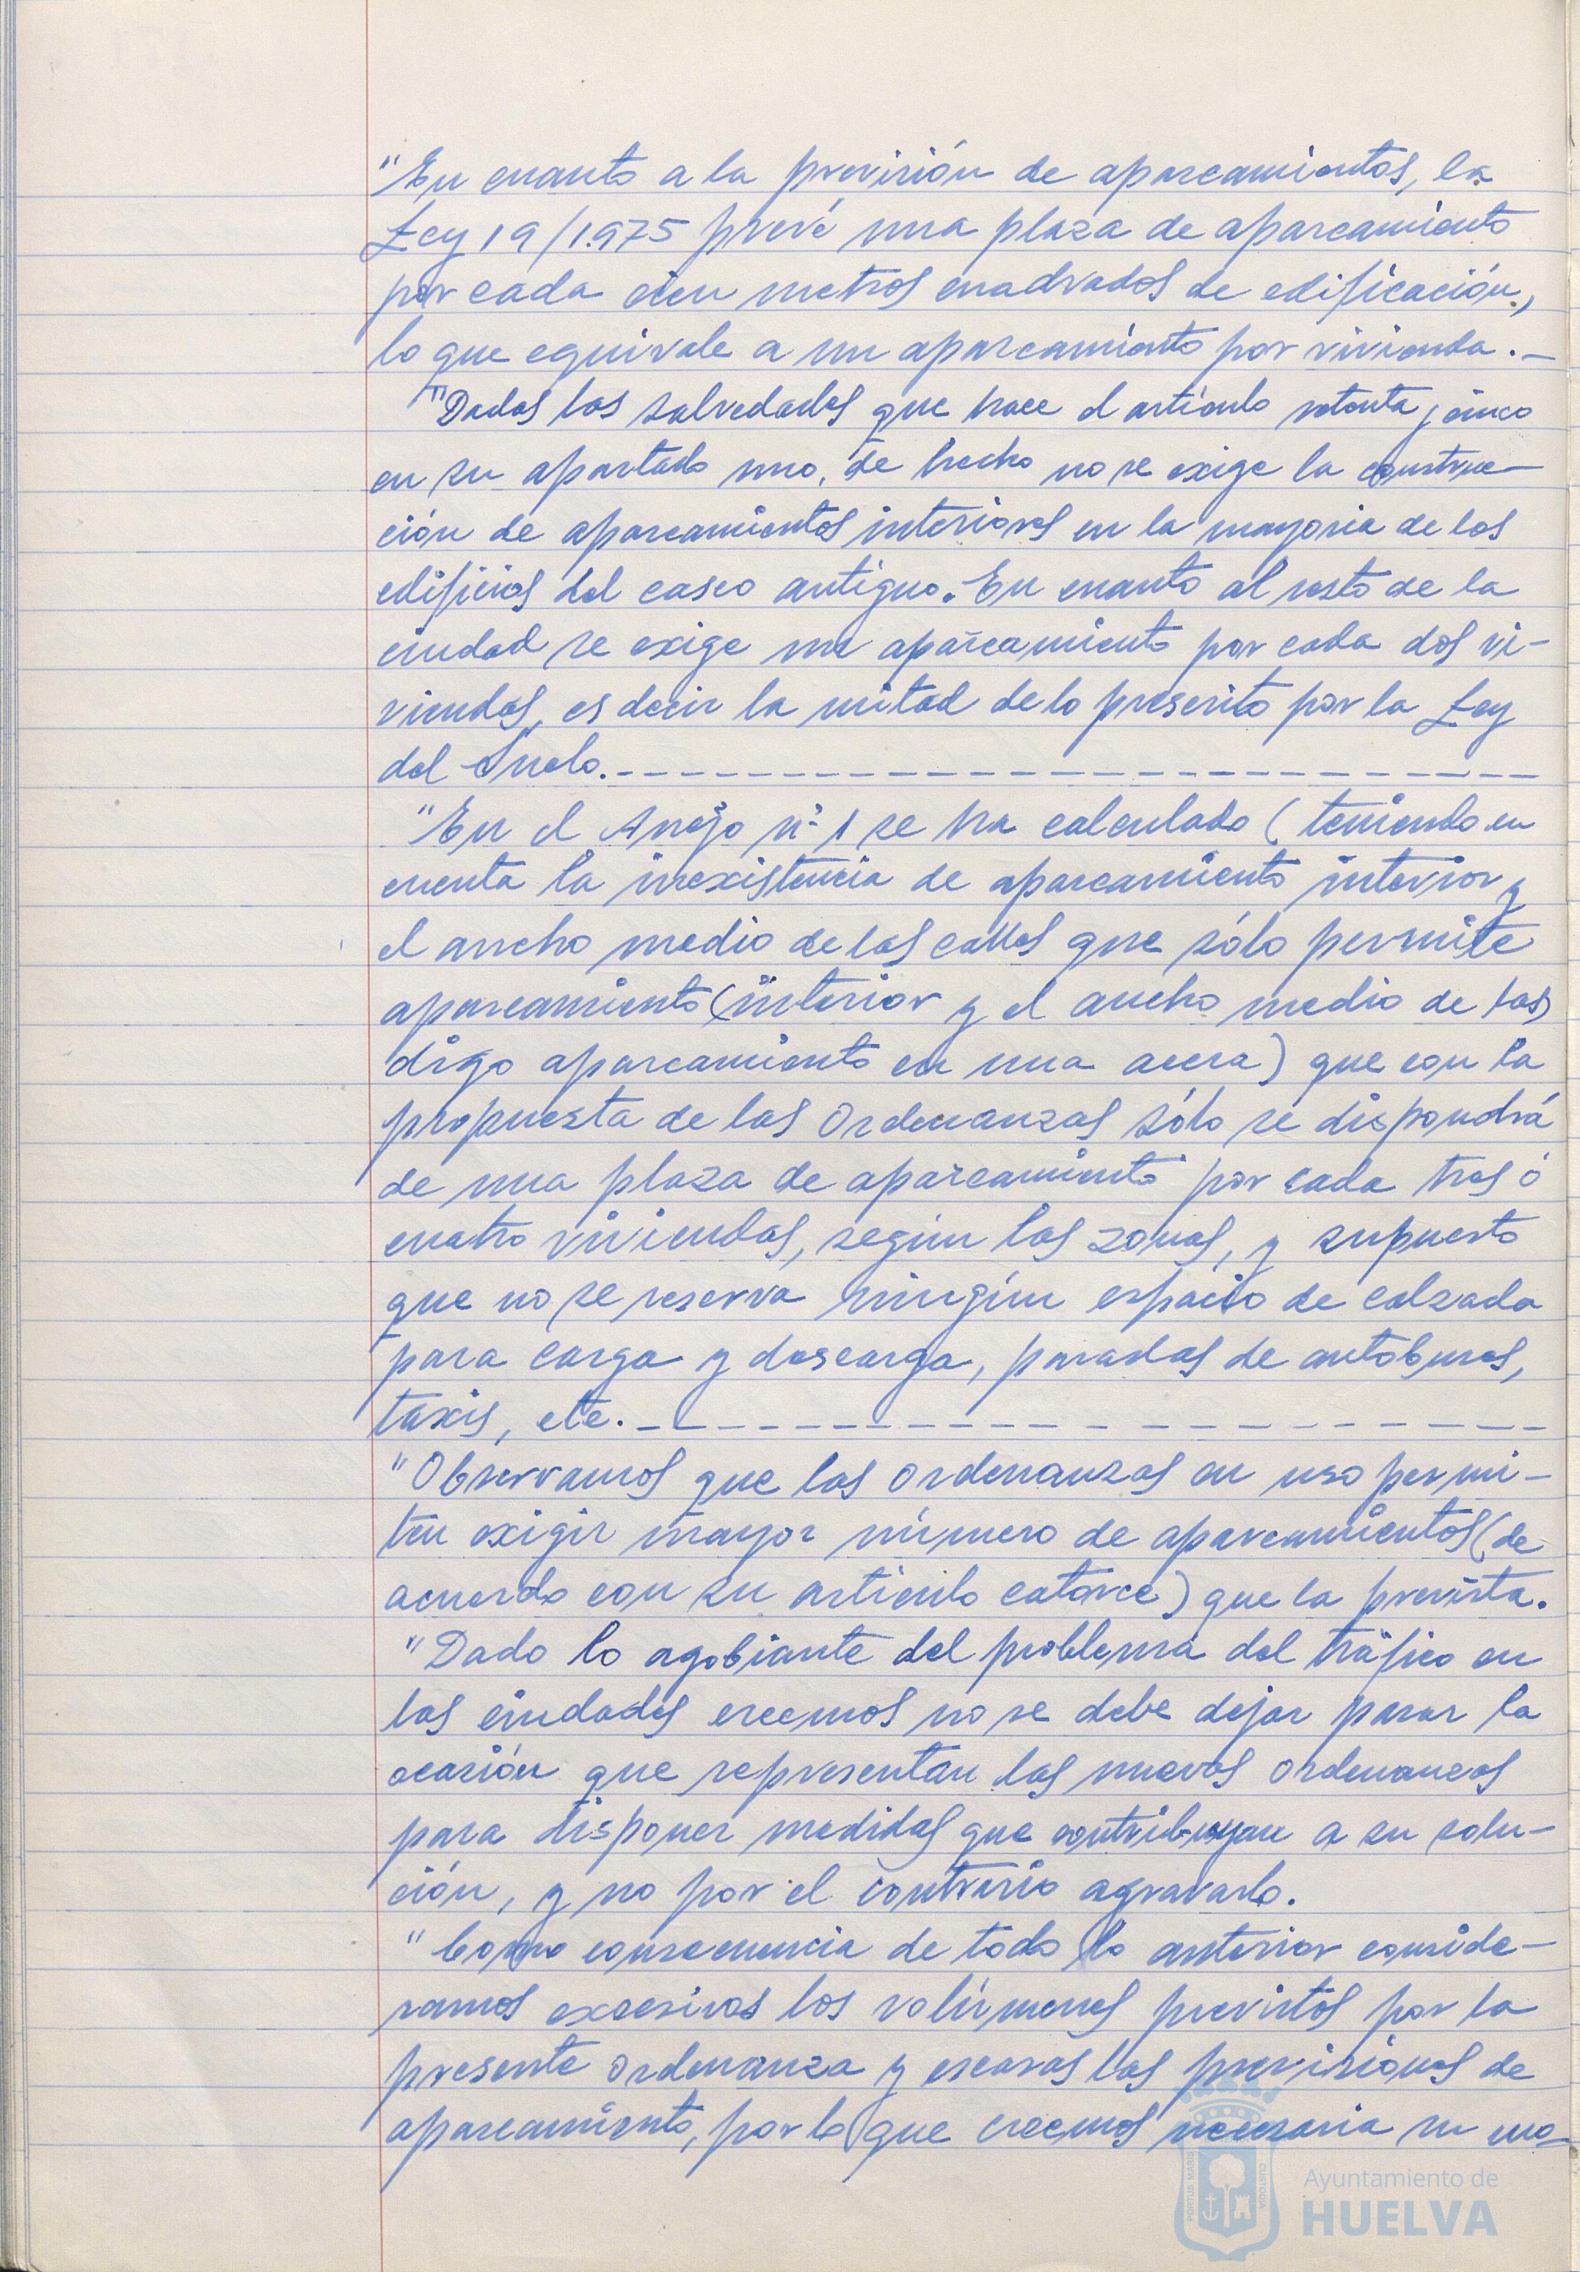 "En cuanto a la previsión de aparcamientos, la
Ley 19/1.975 prevé una plaza de aparcamiento
por cada cien metros cuadrados de edificación,
lo que equivale a un aparcamiento por vivienda.-
"Dadas las salvedades que hace el artículo setenta y cinco
en su apartado uno, de hecho no se exige la construc-
ción de aparcamientos interiores en la mayoria de los
edificios del casco antiguo. En cuanto al resto de la
ciudad se exige un aparcamiento por cada dos vi-
viendas, es decir la mitad de lo prescrito por la Ley
del Suelo.- - - - - - - - - - - - - - - - - - - - -
"En el Anejo nº 1 se ha calculado (teniendo en
cuenta la inexistencia de aparcamiento interior y
el ancho medio de las calles que sólo permite
aparcamiento (interior y el ancho medio de las)
digo aparcamiento en una acera) que con la
propuesta de las Ordenanzas sólo se dispondrá
de una plaza de aparcamiento por cada tres ó
cuatro viviendas, según las zonas, y supuesto
que no se reserva ningún espacio de calzada
para carga y descarga, paradas de autobuses,
taxis, etc.- - - - - - - - - - - - - - - - - - - -
"Observamos que las Ordenanzas en uso permi-
ten exigir mayor número de aparcamientos (de
acuerdo con su articulo catorce) que la prevista.
"Dado lo agobiante del problema del tráfico en
las ciudades creemos no se debe dejar pasar la
ocasión que representan las nuevas Ordenanzas
para disponer medidas que contribuyan a su solu-
ción, y no por el contrario agravarlo.
"Como consecuencia de todo lo anterior conside-
ramos excesivos los volúmenes previstos por la
presente Ordenanza y escasas las previsiones de
aparcamiento, por lo que creemos necesaria su mo-
PORTUS MARIS
CUSTODIA
Ayuntamiento de
HUELVA